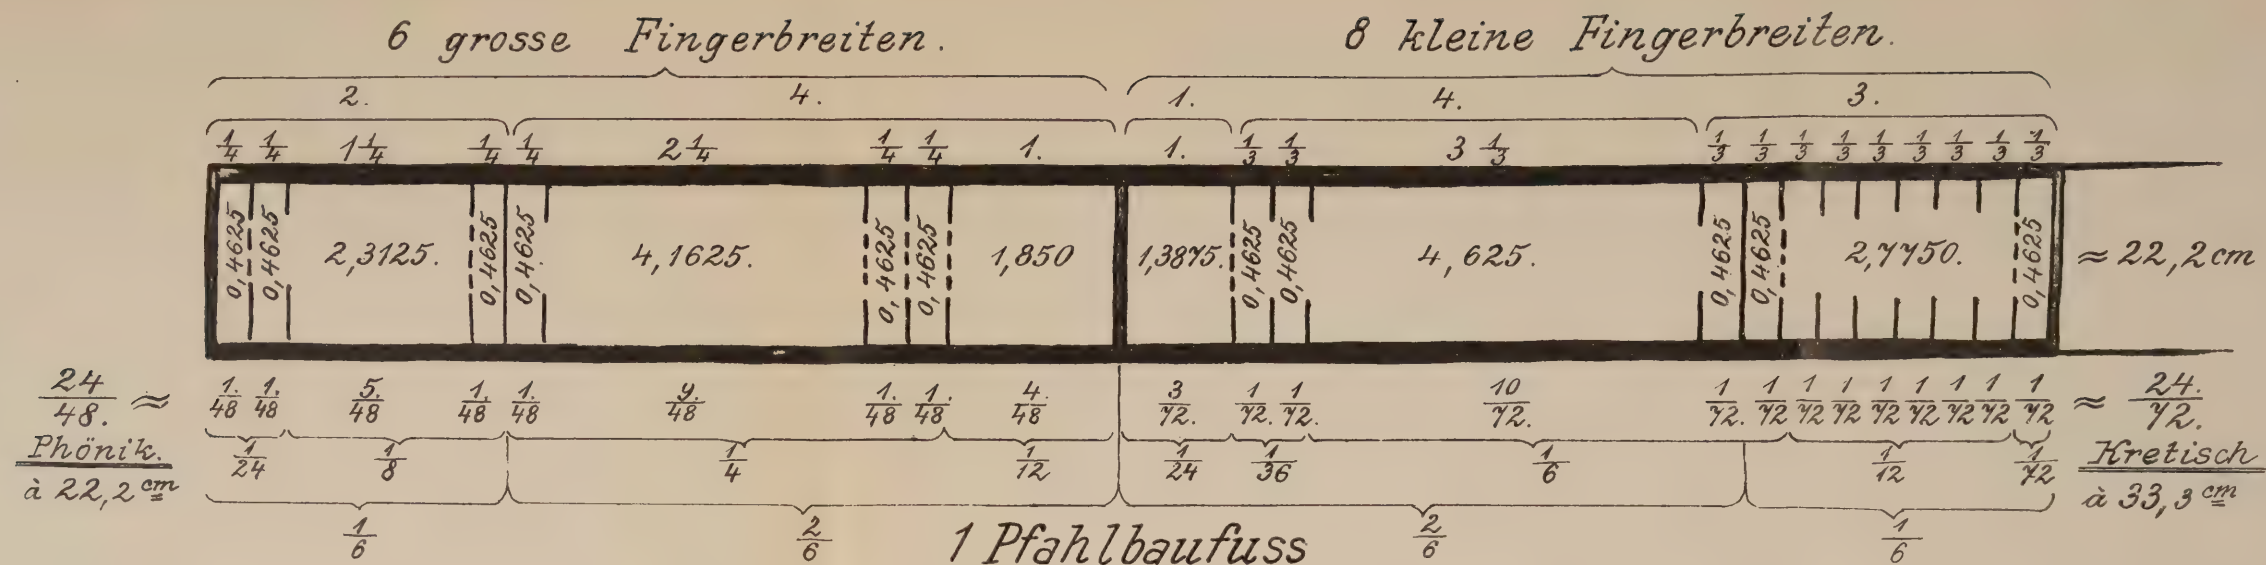 6 grosse Fingerbreiten. 8 kleine Fingerbreiten.
2. 4. 1. 4. 3.
1/4 1/4 1 1/4 1/4 1/4 2 1/4 1/4 1/4 1. 1. 1/3 1/3 3 1/3 1/3 1/3 1/3 1/3 1/3 1/3 1/3 1/3 1/3
0,4625 0,4625 2,3125. 0,4625 0,4625 4,1625. 0,4625 0,4625 1,850 1,3875. 0,4625 0,4625 4,625. 0,4625 0,4625 2,7750. 0,4625 ≈ 22,2 cm
24/48. ≈ 1./48 1./48 5./48 1./48 1./48 9./48 1./48 1./48 4./48 3/72. 1/72. 1/72. 10/72. 1/72. 1/72 1/72 1/72 1/72 1/72 1/72 1/72 1/72 ≈ 24./72.
Phönik. 1/24 1/8 1/4 1/12 1/24 1/36 1/6 1/12 1/72 Kretisch
à 22,2 cm à 33,3 cm
1/6 2/6 1 Pfahlbaufuss 2/6 1/6